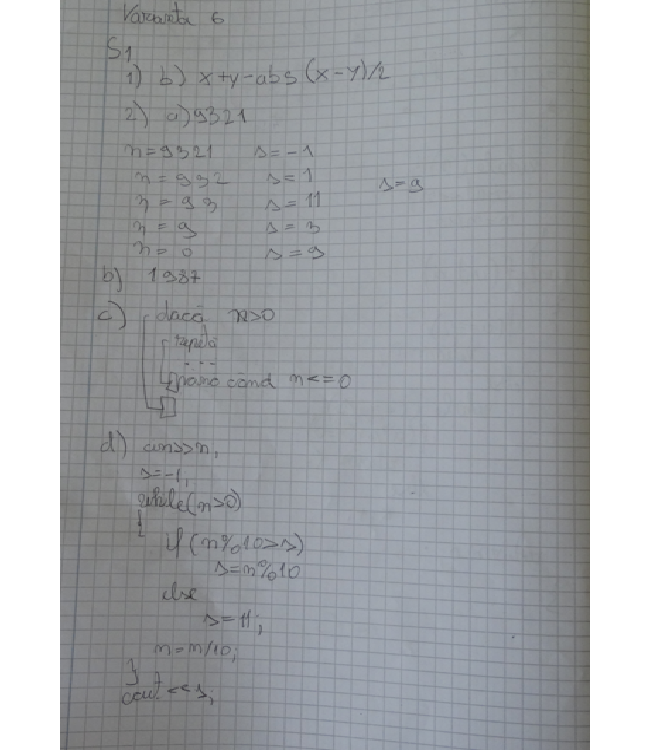 Varianta 6
S1
1) b) x+y-abs(x-y)/2
2) a) 9321
n=9321 s=-1
n=932 s=1
n=93 s=11
n=9 s=3
n=0 s=9
s=9
b) 1987
c) dacă n>0
repetă
...
până când n<=0
d) cin>>n;
s=-1;
while(n>0)
{
if(n%10>s)
s=n%10
else
s=11;
n=n/10;
}
cout<<s;